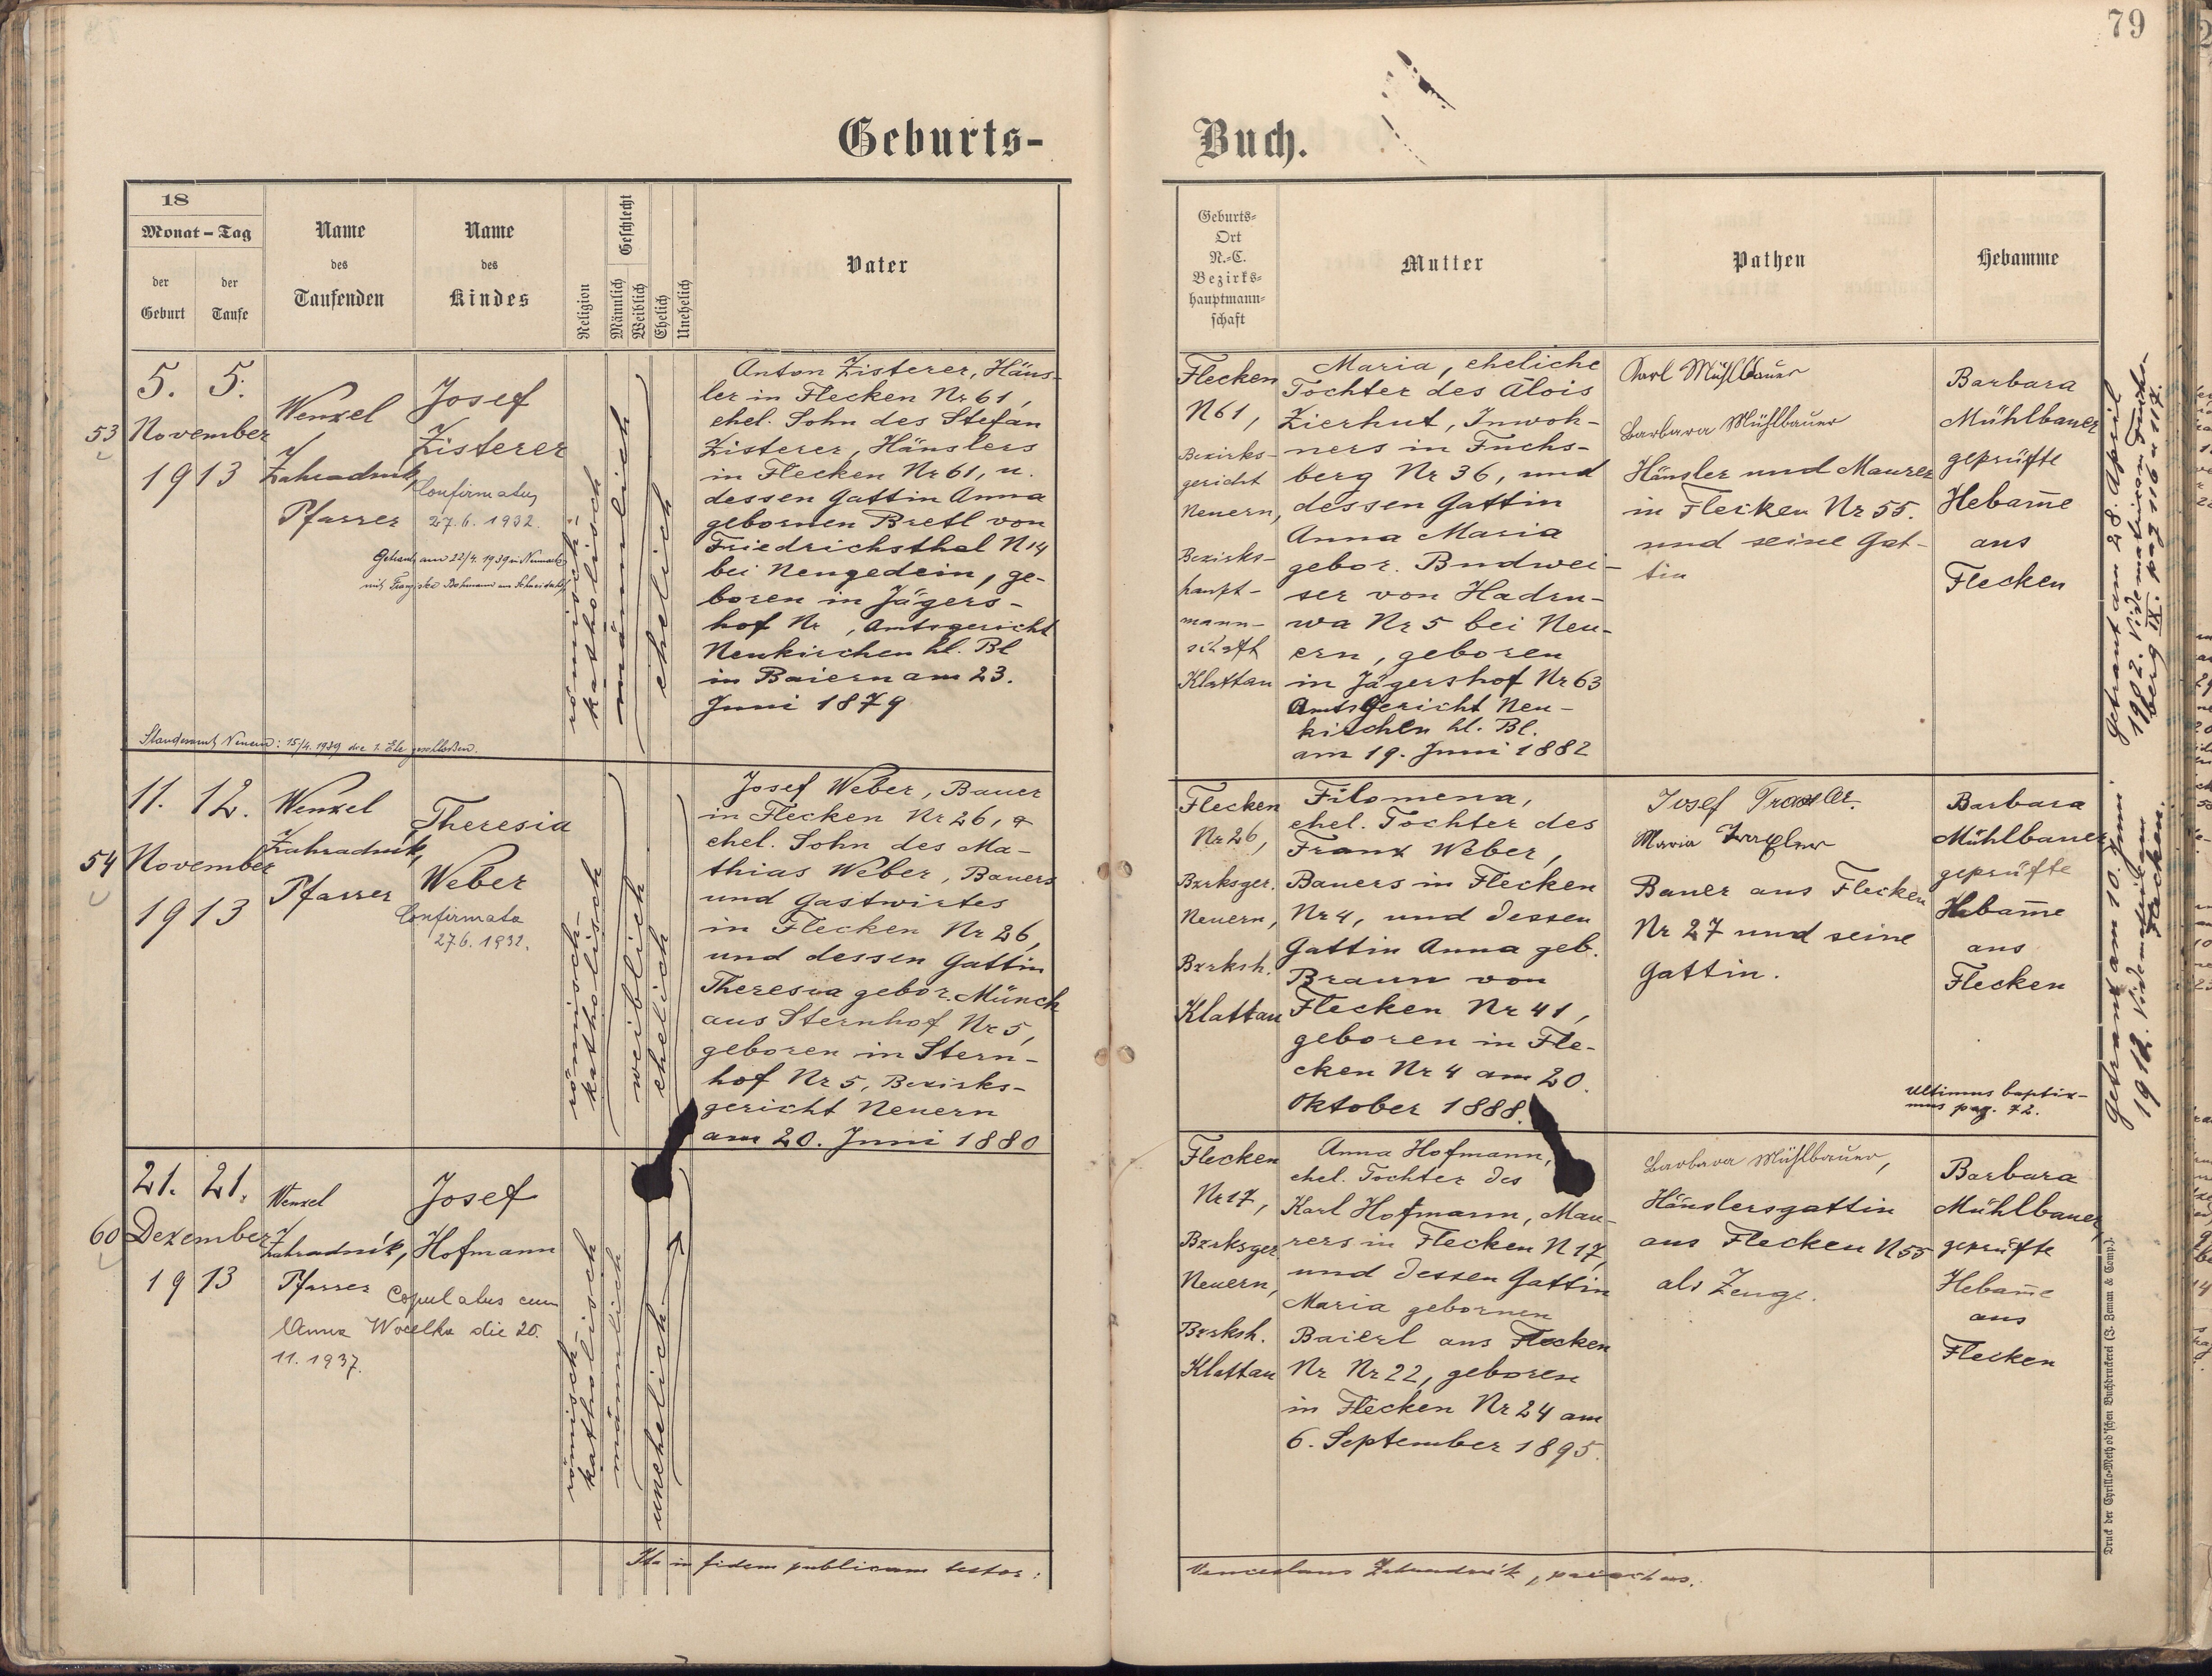 79
Geburts-
Buch.
18
Monat - Tag
der Geburt
der Taufe
Name
des
Taufenden
Name
des
Kindes
Religion
Geschlecht
Männlich
Weiblich
Ehelich
Unehelich
Vater
Geburts-
Ort
N.-C.
Bezirks-
hauptmann-
schaft
Mutter
Pathen
Hebamme
53
5. 5.
November
1913
Wenzel
Zahradník,
Pfarrer
Josef
Zisterer
Confirmatus
27.6. 1932.
Getraut am 22/4. 1939 in Neumark
mit Franziska Bohmann aus
römisch-
katholisch
männlich
ehelich
Anton Zisterer, Häus-
ler in Flecken Nr 61,
ehel. Sohn des Stefan
Zisterer, Häuslers
in Flecken Nr 61, u.
dessen Gattin Anna
gebornen Bretl von
Friedrichsthal N 14
bei Neugedein, ge-
boren in Jägers-
hof Nr , Amtsgericht
Neukirchen hl. Bl
in Baiern am 23.
Juni 1879
Standesamt Neuern: 15/4. 1939 die 1. Ehe geschloßen.
Flecken
N 61,
Bezirks-
gericht
Neuern,
Bezirks-
haupt-
mann-
schaft
Klattau
Maria, eheliche
Tochter des Alois
Zierhut, Inwoh-
ners in Fuchs-
berg Nr 36, und
dessen Gattin
Anna Maria
gebor. Budwei-
ser von Hadru-
wa Nr 5 bei Neu-
ern, geboren
in Jägershof Nr 63
Amtsgericht Neu-
kirchen hl. Bl.
am 19. Juni 1882
Karl Mühlbauer
Barbara Mühlbauer
Häusler und Maurer
in Flecken Nr 55.
und seine Gat-
tin
Barbara
Mühlbauer
geprüfte
Hebam̄e
aus
Flecken
getraut am 28. April
1902. Vidematrikam Fuchs-
berg IX. pag 116 u 117.
54
11. 12.
November
1913
Wenzel
Zahradník,
Pfarrer
Theresia
Weber
Confirmata
27.6. 1932.
römisch-
katholisch
weiblich
ehelich
Josef Weber, Bauer
in Flecken Nr 26,
ehel. Sohn des Ma-
thias Weber, Bauers
und Gastwirtes
in Flecken Nr 26,
und dessen Gattin
Theresia gebor. Münch
aus Sternhof Nr 5,
geboren in Stern-
hof Nr 5, Bezirks-
gericht Neuern
am 20. Juni 1880
Flecken
Nr 26,
Bzrksger.
Neuern,
Bzrksh.
Klattau
Filomena,
ehel. Tochter des
Franz Weber,
Bauers in Flecken
Nr 4, und dessen
Gattin Anna geb.
Braun von
Flecken Nr 41,
geboren in Fle-
cken Nr 4 am 20.
Oktober 1888.
Josef Traxler.
Maria Traxler
Bauer aus Flecken
Nr 27 und seine
Gattin.
Barbara
Mühlbauer
geprüfte
Hebam̄e
aus
Flecken
getraut am 10. Juni
1912. Vidematrikam
Flecken.
Ultimus baptiz-
mus pag. 72.
60
21. 21.
Dezember
1913
Wenzel
Zahradník,
Pfarrer
Josef
Hofmann
Copulatus cum
Anna Wocelka die 20.
11. 1937.
römisch-
katholisch
männlich
unehelich
Flecken
Nr 17,
Bzrksger
Neuern,
Bzrksh.
Klattau
Anna Hofmann,
ehel. Tochter des
Karl Hofmann, Mau-
rers in Flecken N 17,
und dessen Gattin
Maria gebornen
Baierl aus Flecken
Nr Nr 22, geboren
in Flecken Nr 24 am
6. September 1895.
Barbara Mühlbauer,
Häuslersgattin
aus Flecken N 55
als Zeuge.
Barbara
Mühlbauer,
geprüfte
Hebam̄e
aus
Flecken
Ita in fidem publicam testor:
Venceslaus Zahradník, parochus.
Druck der Cyrillo-Method'schen Buchdruckerei (J. Zeman & Comp.).